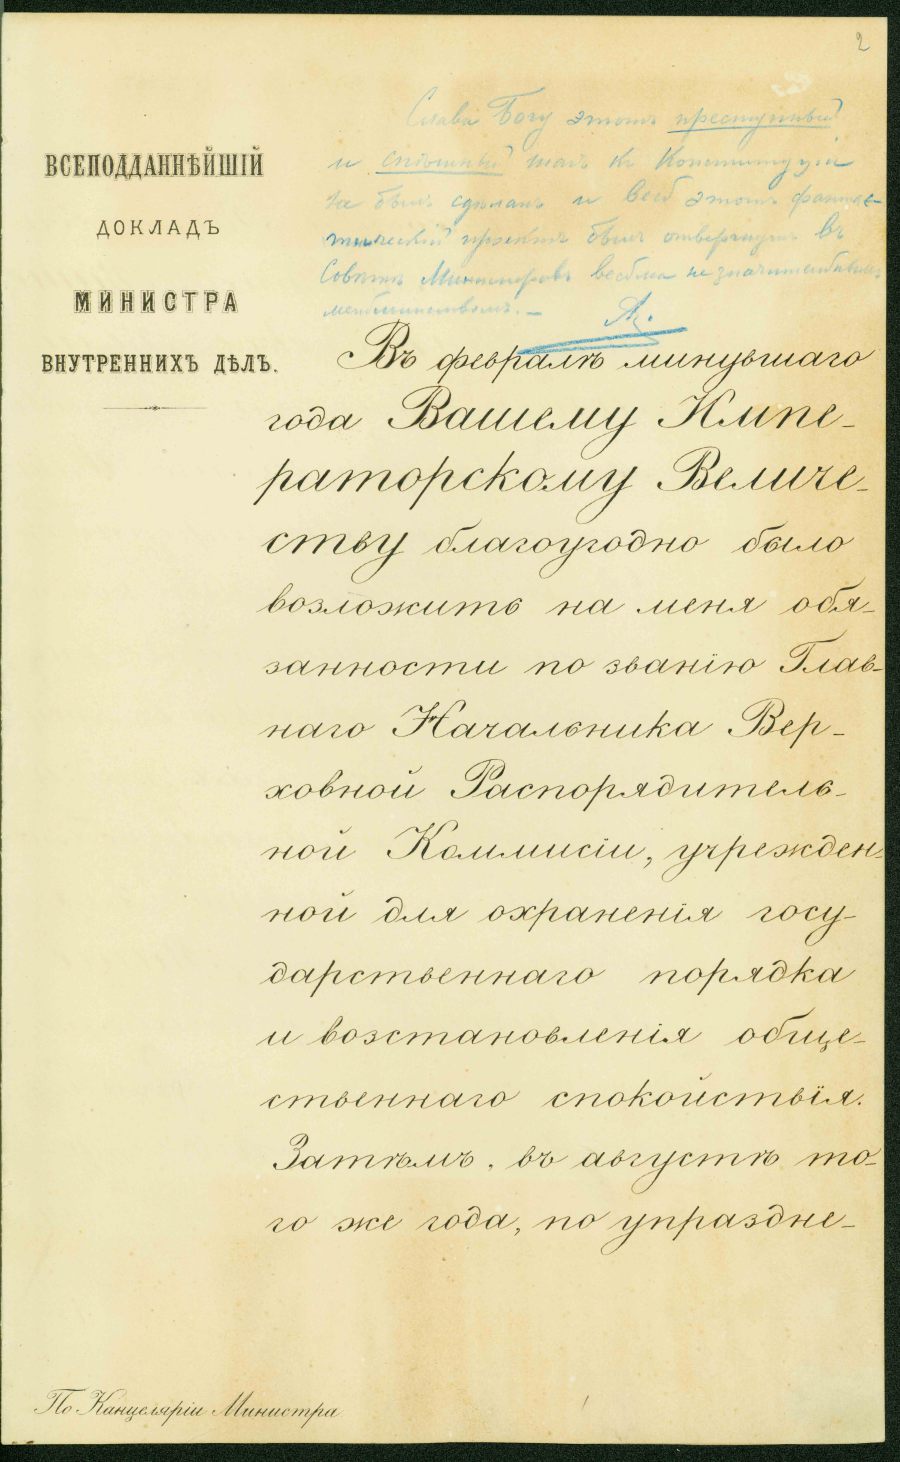 2
Слава Богу этотъ преступный
и спѣшный шагъ къ Конституціи
не былъ сдѣланъ и весь этотъ фантас-
тическій проектъ былъ отвергнутъ въ
Совѣтѣ Министровъ весьма незначительнымъ
меньшинствомъ. –
А.
ВСЕПОДДАННѢЙШІЙ
ДОКЛАДЪ
МИНИСТРА
ВНУТРЕННИХЪ ДѢЛЪ.
Въ февралѣ минувшаго
года Вашему Импе-
раторскому Величе-
ству благоугодно было
возложить на меня обя-
занности по званію Глав-
наго Начальника Вер-
ховной Распорядитель-
ной Коммисіи, учрежден-
ной для охраненія госу-
дарственнаго порядка
и возстановленія обще-
ственнаго спокойствія.
Затѣмъ, въ августѣ то-
го же года, по упраздне-
По Канцеляріи Министра